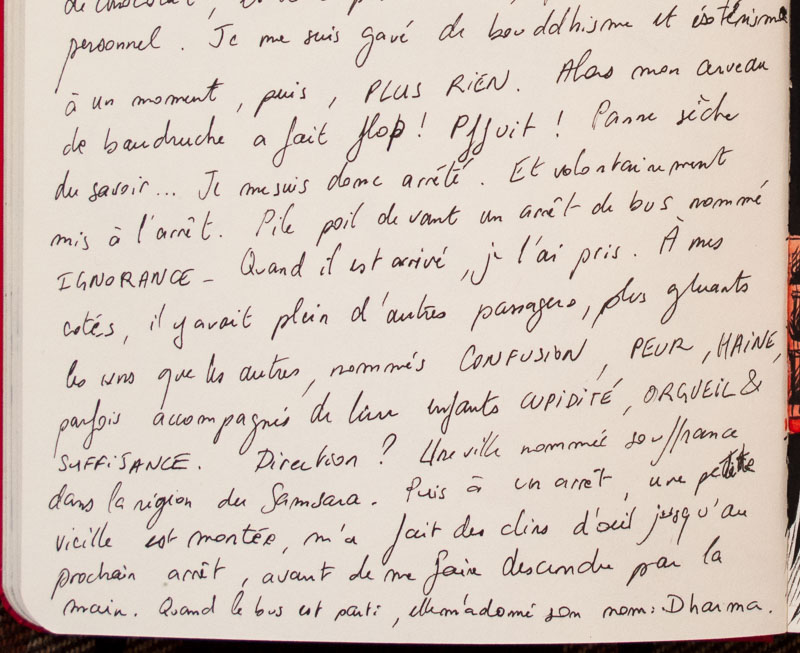 personnel. Je me suis gavé de bouddhisme et ésotérisme
à un moment, puis, PLUS RIEN. Alors mon cerveau
de baudruche a fait flop! Pffuit! Panne sèche
du savoir... Je me suis donc arrêté. Et volontairement
mis à l'arrêt. Pile poil devant un arrêt de bus nommé
IGNORANCE - Quand il est arrivé, je l'ai pris. À mes
cotés, il y avait plein d'autres passagers, plus gluants
les uns que les autres, nommés CONFUSION, PEUR, HAINE,
parfois accompagnés de leur enfants CUPIDITÉ, ORGUEIL &
SUFFISANCE. Direction? Une ville nommée souffrance
dans la région du Samsara. Puis à un arrêt, une petite
vieille est montée, m'a fait des clins d'œil jusqu'au
prochain arrêt, avant de me faire descendre par la
main. Quand le bus est parti, elle m'a donné son nom: Dharma.